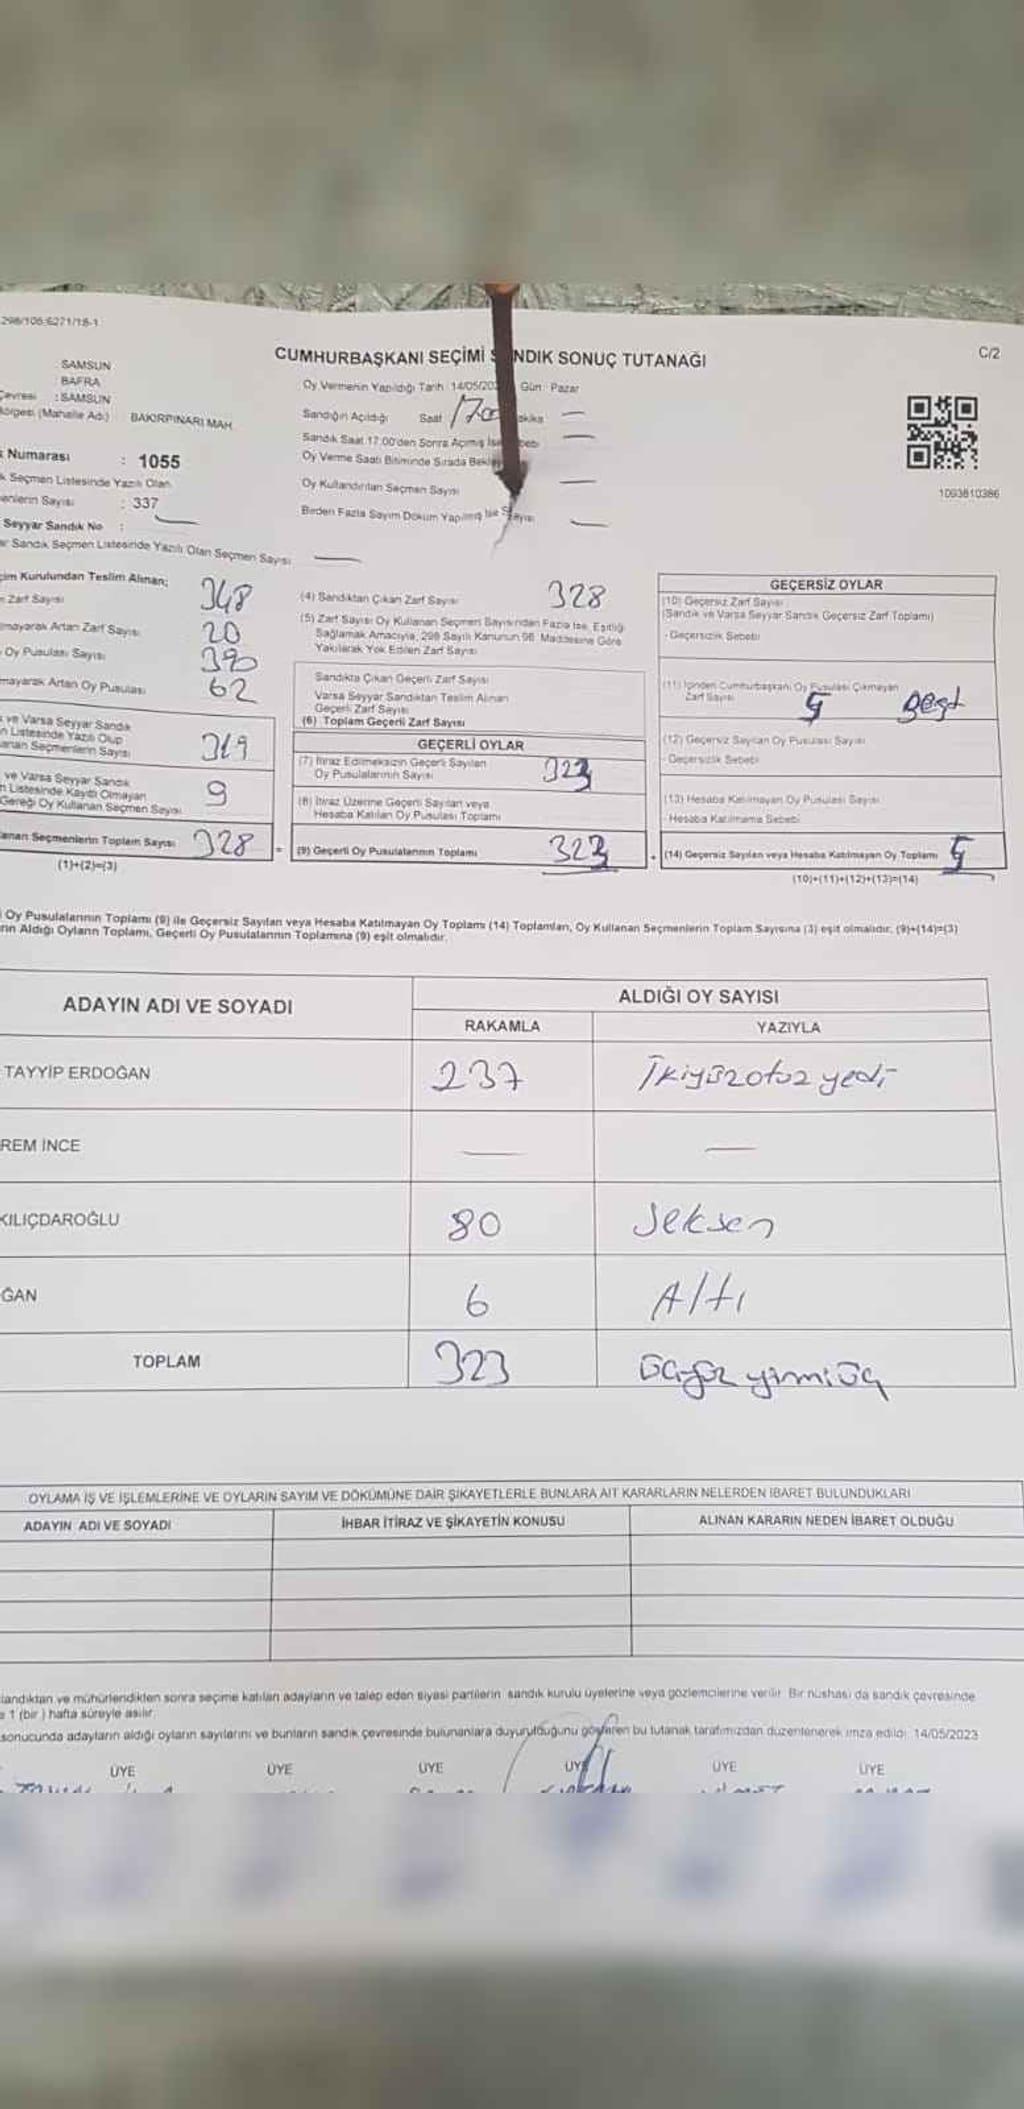 298/106.6271/18-1
CUMHURBAŞKANI SEÇİMİ S NDIK SONUÇ TUTANAĞI
C/2
SAMSUN
BAFRA
: SAMSUN
(Mahalle Adı) BAKIRPINARI MAH.
Numarası : 1055
Seçmen Listesinde Yazılı Olan
Sayısı : 337
Seyyar Sandık No :
Sandık Seçmen Listesinde Yazılı Olan Seçmen Sayısı
Oy Vermenin Yapıldığı Tarih : 14/05/202 Gün : Pazar
Sandığın Açıldığı Saat
Sandık Saat 17:00'den Sonra Açılmış İse
Oy Verme Saati Bitiminde Sırada
Oy Kullandırılan Seçmen Sayısı
Birden Fazla Sayım Döküm Yapılmış İse
1093810386
Kurulundan Teslim Alınan;
Zarf Sayısı 348
Artan Zarf Sayısı 20
Oy Pusulası Sayısı 390
Artan Oy Pusulası 62
ve Varsa Seyyar Sandık
Listesinde Yazılı Olup
Seçmenlerin Sayısı 319
ve Varsa Seyyar Sandık
Listesinde Kayıtlı Olmayan
Gereği Oy Kullanan Seçmen Sayısı 9
Seçmenlerin Toplam Sayısı 328 =
(1)+(2)=(3)
(4) Sandıktan Çıkan Zarf Sayısı 328
(5) Zarf Sayısı Oy Kullanan Seçmen Sayısından Fazla İse, Eşitliği
Sağlamak Amacıyla, 298 Sayılı Kanunun 98. Maddesine Göre
Yakılarak Yok Edilen Zarf Sayısı
Sandıkta Çıkan Geçerli Zarf Sayısı
Varsa Seyyar Sandıktan Teslim Alınan
Geçerli Zarf Sayısı
(6) Toplam Geçerli Zarf Sayısı
GEÇERLİ OYLAR
(7) İtiraz Edilmeksizin Geçerli Sayılan
Oy Pusulalarının Sayısı 323
(8) İtiraz Üzerine Geçerli Sayılan veya
Hesaba Katılan Oy Pusulası Toplamı
(9) Geçerli Oy Pusulalarının Toplamı 323
GEÇERSİZ OYLAR
(10) Geçersiz Zarf Sayısı
(Sandık ve Varsa Seyyar Sandık Geçersiz Zarf Toplamı)
- Geçersizlik Sebebi
(11) İçinden Cumhurbaşkanı Oy Pusulası Çıkmayan
Zarf Sayısı 5 Beşt
(12) Geçersiz Sayılan Oy Pusulası Sayısı
- Geçersizlik Sebebi
(13) Hesaba Katılmayan Oy Pusulası Sayısı
- Hesaba Katılmama Sebebi
(14) Geçersiz Sayılan veya Hesaba Katılmayan Oy Toplamı 5
(10)+(11)+(12)+(13)=(14)
Oy Pusulalarının Toplamı (9) ile Geçersiz Sayılan veya Hesaba Katılmayan Oy Toplamı (14) Toplamları, Oy Kullanan Seçmenlerin Toplam Sayısına (3) eşit olmalıdır. (9)+(14)=(3)
Aldığı Oyların Toplamı, Geçerli Oy Pusulalarının Toplamına (9) eşit olmalıdır.
ADAYIN ADI VE SOYADI
ALDIĞI OY SAYISI
RAKAMLA YAZIYLA
TAYYİP ERDOĞAN 237 İkiyüzotuzyedi
REM İNCE — —
KILIÇDAROĞLU 80 Seksen
ĞAN 6 Altı
TOPLAM 323 üçyüz yirmiüç
OYLAMA İŞ VE İŞLEMLERİNE VE OYLARIN SAYIM VE DÖKÜMÜNE DAİR ŞİKAYETLERLE BUNLARA AİT KARARLARIN NELERDEN İBARET BULUNDUKLARI
ADAYIN ADI VE SOYADI İHBAR İTİRAZ VE ŞİKAYETİN KONUSU ALINAN KARARIN NEDEN İBARET OLDUĞU
ve mühürlendikten sonra seçime katılan adayların ve talep eden siyasi partilerin sandık kurulu üyelerine veya gözlemcilerine verilir. Bir nüshası da sandık çevresinde
1 (bir) hafta süreyle asılır.
sonucunda adayların aldığı oyların sayılarını ve bunların sandık çevresinde bulunanlara duyurulduğunu gösteren bu tutanak tarafımızdan düzenlenerek imza edildi. 14/05/2023
ÜYE ÜYE ÜYE ÜYE ÜYE ÜYE